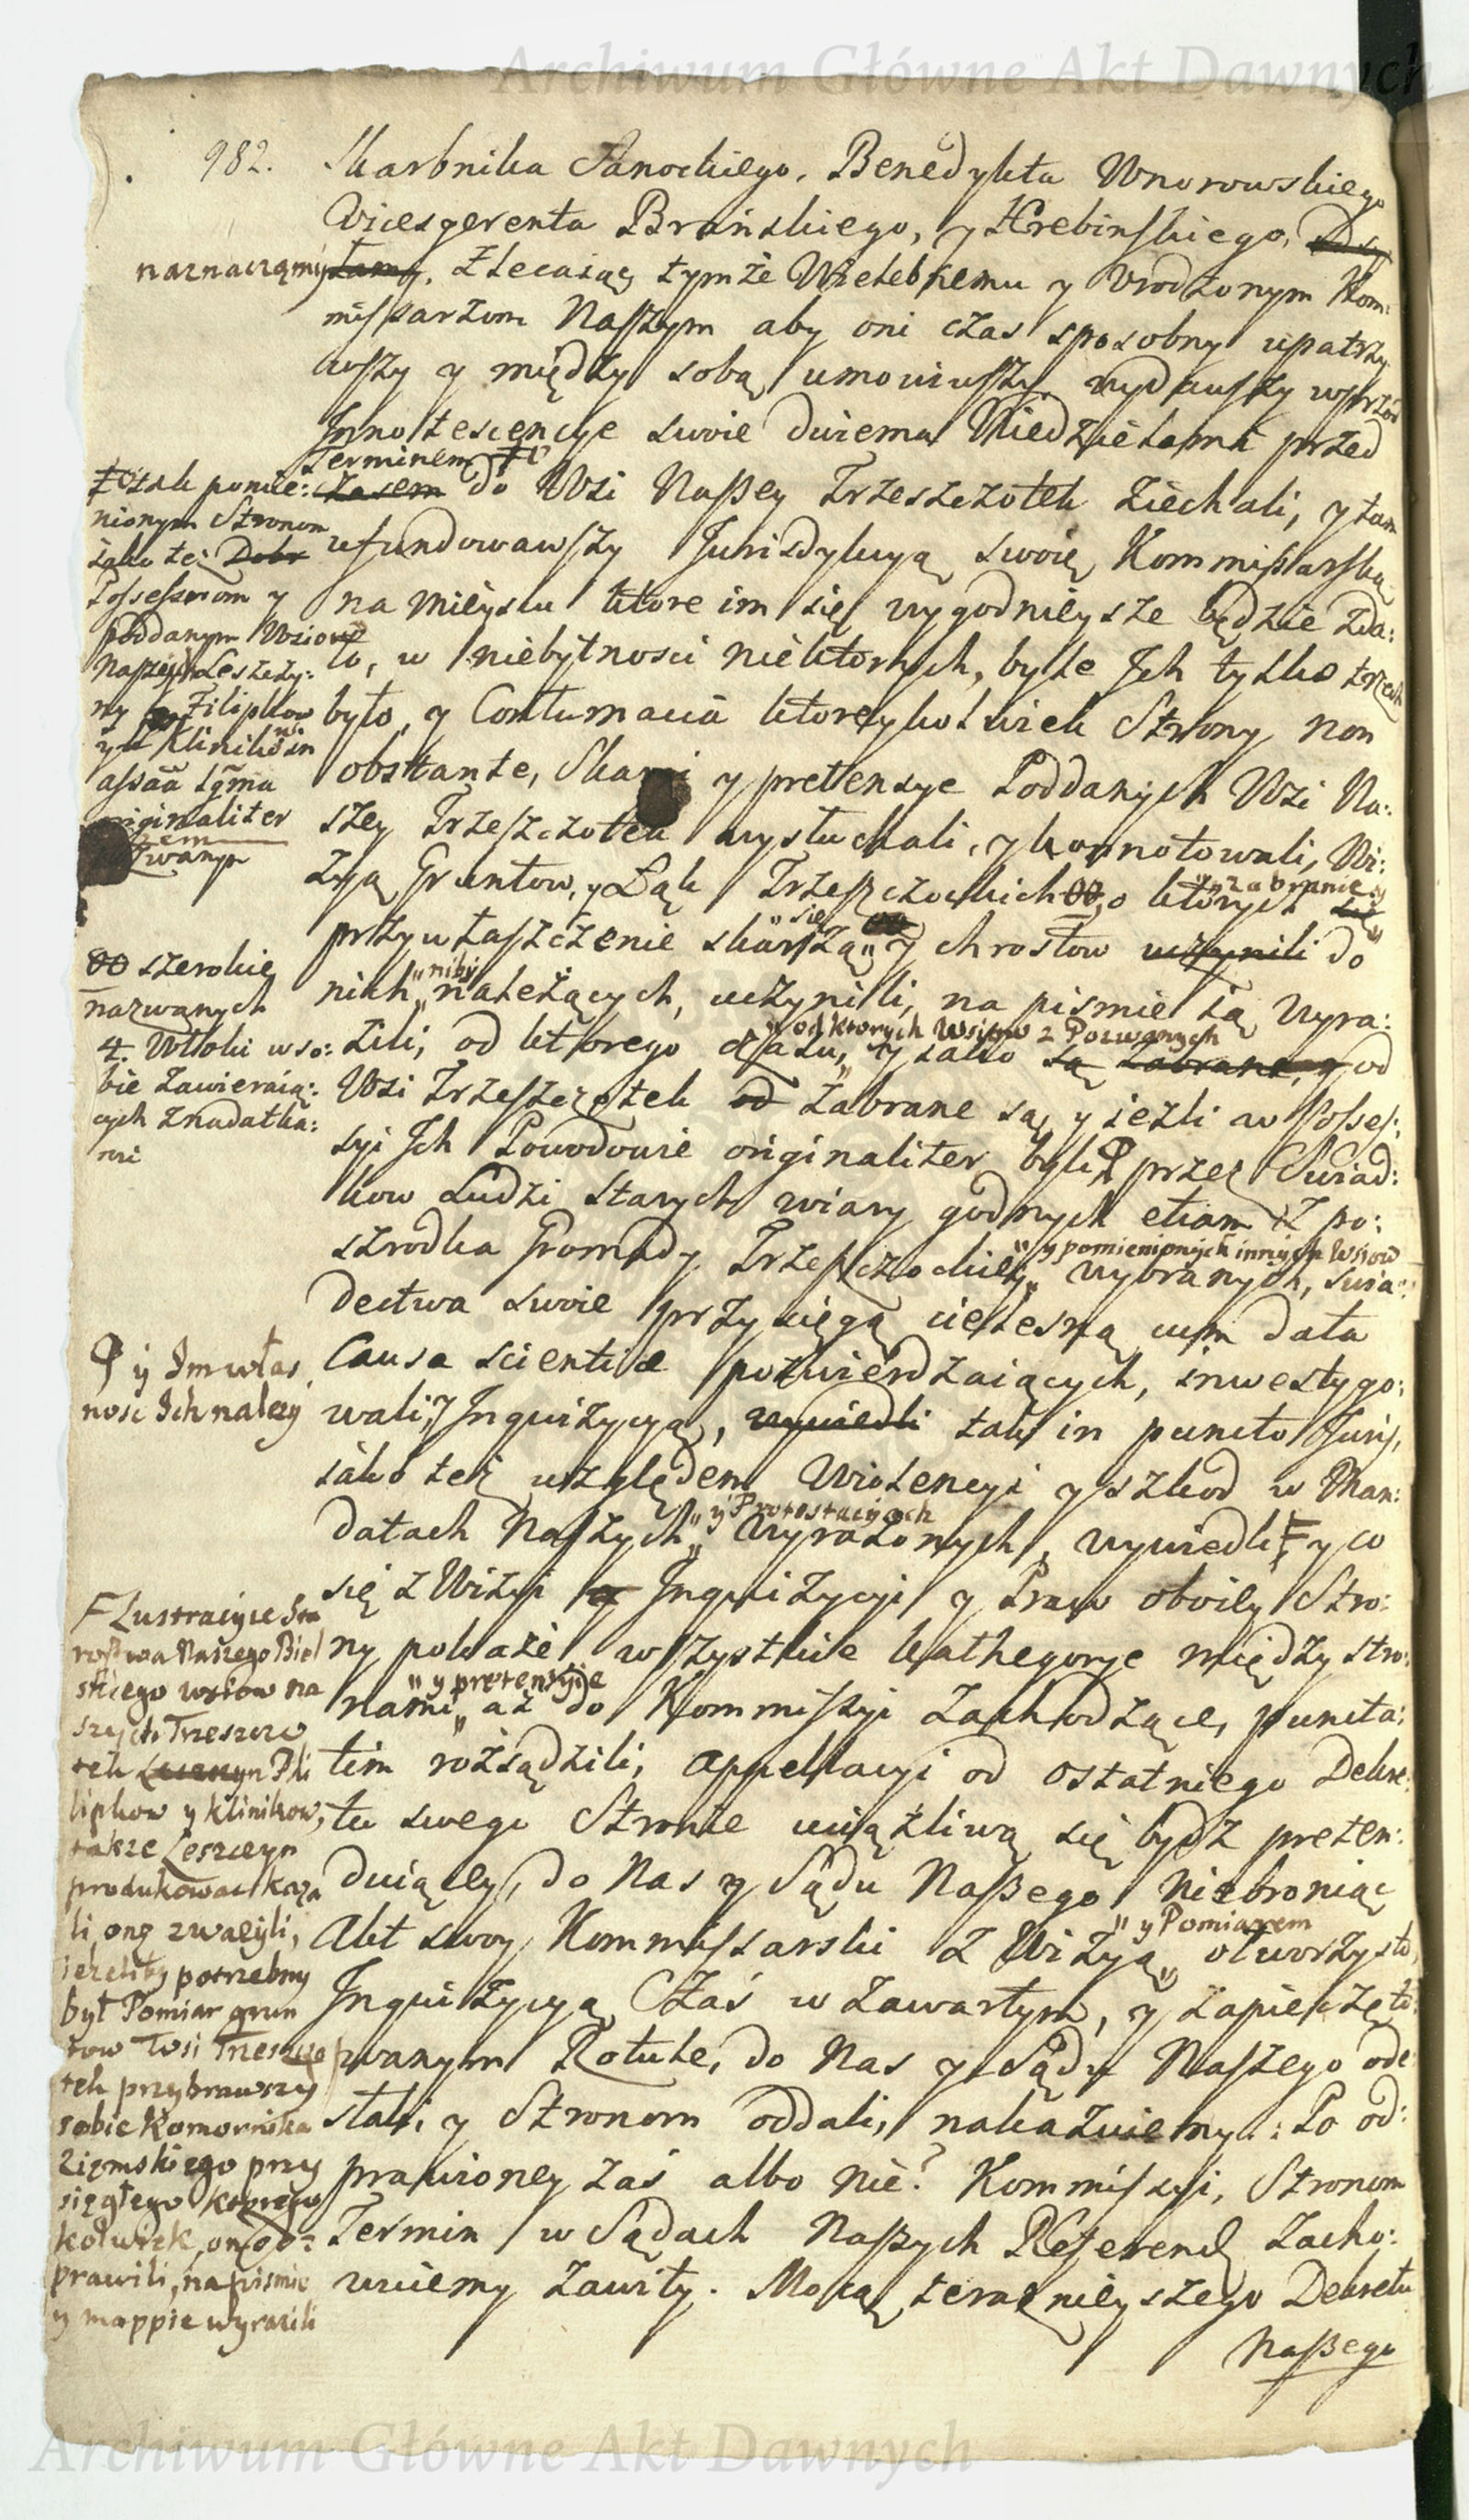 Archiwum Główne Akt Dawnych
982.
Skarbnika Sanockiego, Benedykta Wnorowskiego
Vicesgerenta Brańskiego, y Hrebinskiego,
naznaczamy. Zlecaiąc tymże Wielebnemu y Urodzonym Kom:
missarzom Naszym aby oni czas sposobny upatrzy
wszy y między sobą umowiwszy, wydawszy wprzod
Innotescencye swoie dwiema Niedzielami przed
Terminem
czasem do Wsi Naszey Trzeszczotek ziechali, y tam
ufundowawszy Jurisdykcyą swoię Kommissarską
na mieyscu ktore im się wygodnieysze będzie zda:
ło, w niebytnosci niektorych, byle Ich tylko trzech
było, y Contumacia ktoreykolwiek Strony non
obstante, Skargi y pretensye Poddanych Wsi Na:
szey Trzeszczotek wysłuchali, y konnotowali, Wi:
zyą Gruntow, y Łąk Trzeszczockich o ktorych
zabranie y
się
przywłaszczenie skarżą y chrostow uczynili do
niby
nich należących, uczynili, na pismie ią wyra:
zili, od ktorego czasu, y iako są zabrane, y od
od ktorych Wsiow z Pozwanych
Wsi Trzeszczotek od zabrane są, y iezli w posses:
syi Ich Powodowie originaliter byli przez Swiad:
kow Ludzi starych wiary godnych etiam z po:
szrodka Gromady Trzeszczockiey wybranych, swia:
y pomienionych innych Wsiow
dectwa swoie przysięgą cielesną cum data
Causa scientiæ potwierdzaiących, inwestygo:
wali, y Inquizycyą, wywiedli tak in puncto Juris,
iako też względem Wiolencyi y szkod w Man:
datach Naszych wyrażonych, wywiedli y co
y Protestacyach
się z Wizyi y Inquizycyi y Praw oboiey Stro:
ny pokaże wszystkie kathegorye między stro:
nami aż do Kommissyi zachodzące, puncta:
y pretensyie
tim rozsądzili, appellacyi od ostatniego Dekre:
tu swego Stronie uciążliwą się bydz preten:
duiącey, do Nas y Sądu Naszego Niebroniąc
Akt swoy Kommissarski z Wizyą otworzysto,
y Pomiarem
Inquizycyą Czaś w zawartym, y zapieczęto:
wanym Rotule, do Nas y Sądu Naszego ode
słali, y Stronom oddali, nakazuiemy: Po od:
prawioney zaś albo nie? Kommissyi, Stronom
Termin w Sądach Naszych Referend. zacho:
wuiemy zawity. Mocą teraznieyszego Dekretu
Naszego
tak pomie:
nionym Stronom
iako też Dobr
Possessorom y
poddanym Wsiow
Naszych Leszczy:
ny Filipkow
y Klinikow in
originaliter
zwanym
szerokie
nazwanych
4. Wloki w so:
bie zawieraią:
cych z nadatka:
mi
y Im włas
nosc Ich nalezy
F Lustracyie Sta
rostwa Naszego Biel
skiego wsiow na
szych Trzeszczo
tek Leszczyn Phi
lipkow y Klinikow,
takze Leszczyn
produkowac kaza
li, one zwazyli,
iezeliby potrzebny
był Pomiar grun
tow Wsi Trzeszczo
tek przybrawszy
sobie Komornika
Ziemskiego przy
sięgłego ktorego
kolwiek, on od:
prawili, na pismie
y mappie wyrazili
Archiwum Główne Akt Dawnych